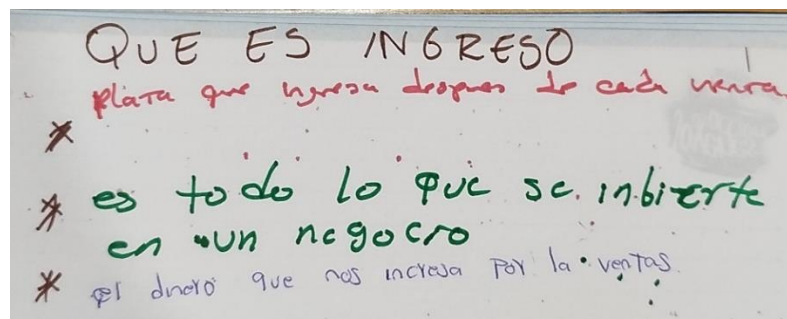 QUE ES INGRESO
plata que ingresa despues de cada venta
* es todo lo que se inbierte
en un negocio
* el dinero que nos incresa por la ventas